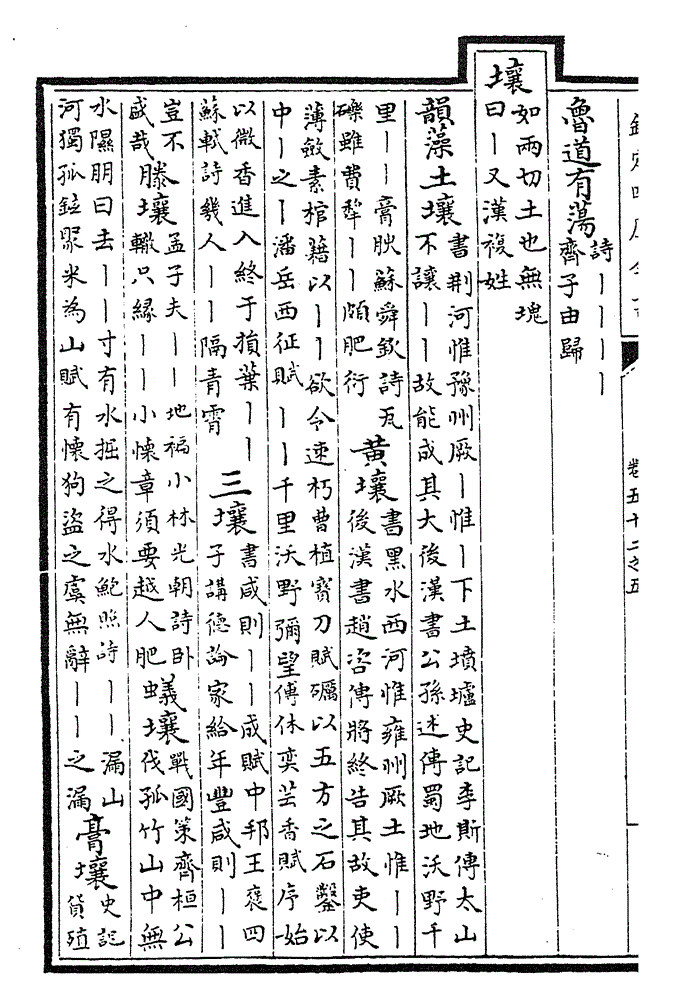 欽定四庫全書 卷五十二之五
魯道有蕩 詩｜｜｜｜
齊子由歸
壤 如兩切土也無塊
曰｜又漢複姓
韻藻土壤 書荆河惟豫州厥｜惟｜下土墳壚史記李斯傳太山
不讓｜｜故能成其大後漢書公孫述傳蜀地沃野千
里｜｜膏腴蘇舜欽詩瓦
礫雖費犂｜｜頗肥衍
黄壤 書黑水西河惟雍州厥土惟｜｜
後漢書趙咨傳將終告其故吏使
薄斂素棺藉以｜｜欲令速朽曹植寶刀賦礪以五方之石鑿以
中｜之｜潘岳西征賦｜｜千里沃野彌望傅休奕芸香賦序始
以微香進入終于捐棄｜｜
蘇軾詩幾人｜｜隔青霄
三壤 書咸則｜｜成賦中邦王襃四
子講德論家給年豐咸則｜｜
豈不
盛哉
滕壤 孟子夫｜｜地褊小林光朝詩卧
轍只縁｜｜小懷章須要越人肥
蟻壤 戰國策齊桓公
伐孤竹山中無
水隰朋曰去｜｜寸有水掘之得水鮑照詩｜｜漏山
河獨孤鉉聚米為山賦有懷狗盜之虞無辭｜｜之漏
膏壤 史記
貨殖